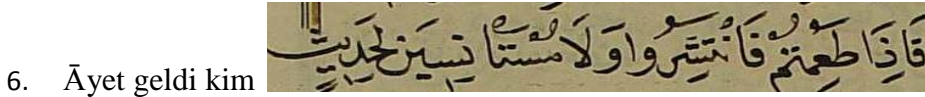 6. Āyet geldi kim فَاِذَا طَعِمْتُمْ فَانْتَشِرُوا وَلَا مُسْتَأْنِسِينَ لِحَدِيثٍ